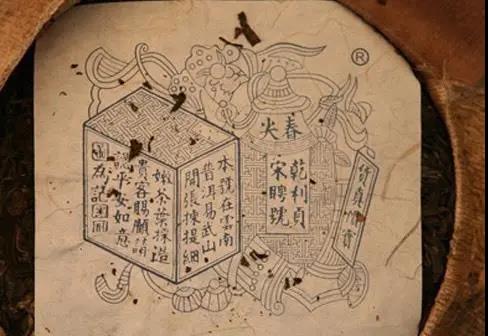 ®
春尖
乾利貞
宋聘號
本號在雲南
普洱易武山
開張揀提細
嫩茶葉採造
貴客賜顧請
認平安如意
為記